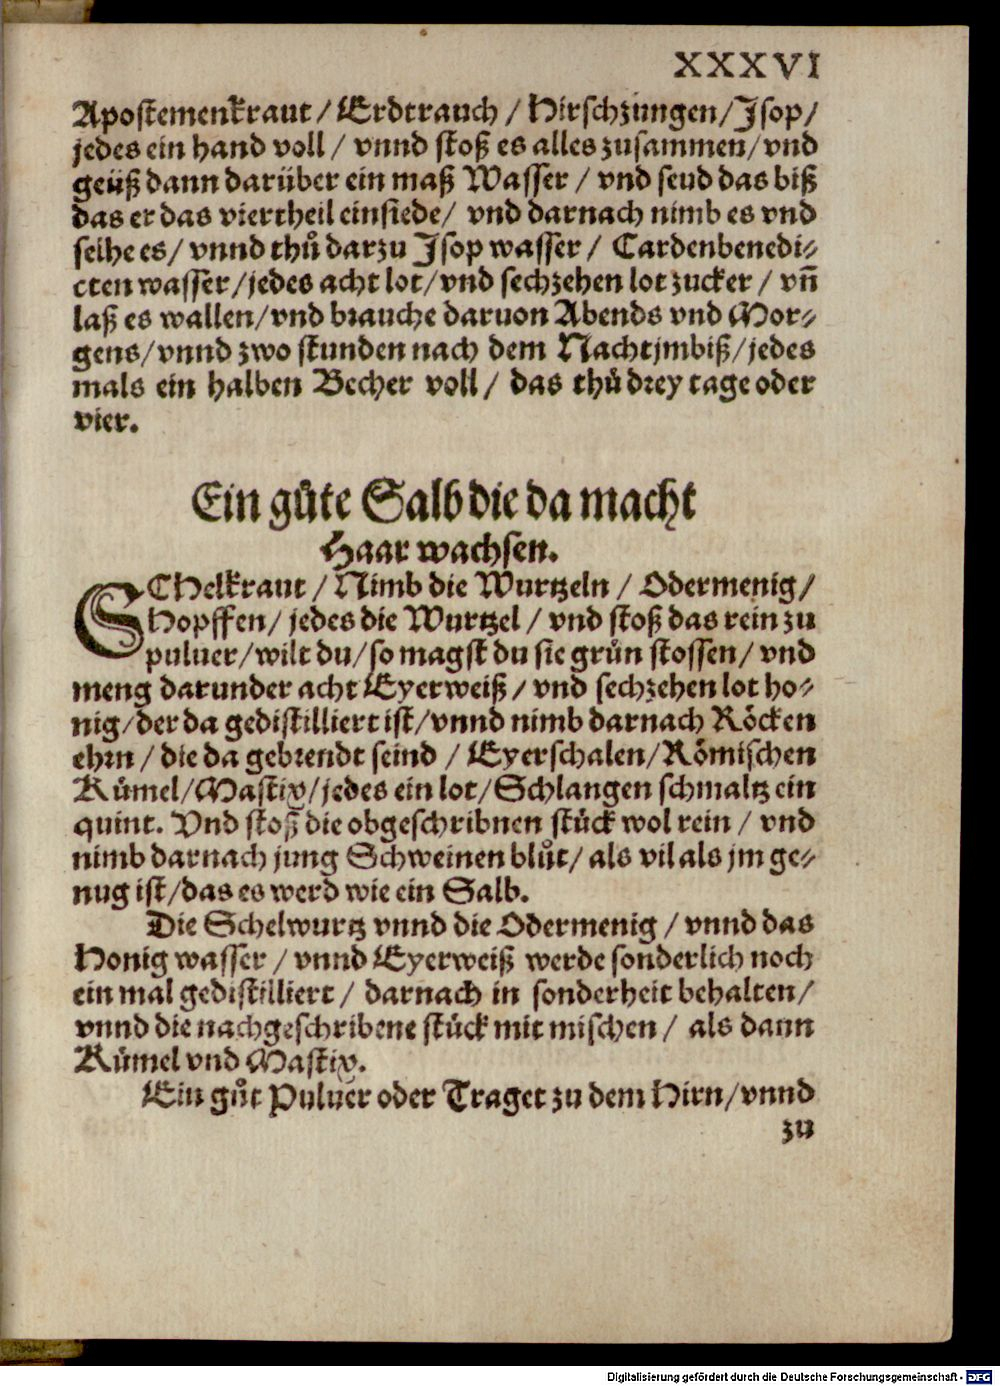 XXXVI
Apostemenkraut / Erdtrauch / Hirschzungen / Jsop /
jedes ein hand voll / vnnd stoß es alles zusammen / vnd
geüß dann darüber ein maß Wasser / vnd seud das biß
das er das viertheil einsiede / vnd darnach nimb es vnd
seihe es / vnnd thů darzu Jsop wasser / Cardenbenedi⸗
cten wasser / jedes acht lot / vnd sechzehen lot zucker / vñ
laß es wallen / vnd brauche daruon Abends vnd Mor⸗
gens / vnnd zwo stunden nach dem Nachtjmbiß / jedes
mals ein halben Becher voll / das thů drey tage oder
vier.
Ein gůte Salb die da macht
Haar wachsen.
SChelkraut / Nimb die Wurtzeln / Odermenig /
Hopffen / jedes die Wurtzel / vnd stoß das rein zu
puluer / wilt du / so magst du sie grůn stossen / vnd
meng darunder acht Eyerweiß / vnd sechzehen lot ho⸗
nig / der da gedistilliert ist / vnnd nimb darnach Röcken
ehrn / die da gebrendt seind / Eyerschalen / Römischen
Kůmel / Mastix / jedes ein lot / Schlangen schmaltz ein
quint. Vnd stoß die obgeschribnen stůck wol rein / vnd
nimb darnach jung Schweinen blůt / als vil als jm ge⸗
nug ist / das es werd wie ein Salb.
Die Schelwurtz vnnd die Odermenig / vnnd das
Honig wasser / vnnd Eyerweiß werde sonderlich noch
ein mal gedistilliert / darnach in sonderheit behalten /
vnnd die nachgeschribene stůck mit mischen / als dann
Kůmel vnd Mastix.
Ein gůt Puluer oder Traget zu dem Hirn / vnnd
zu
Digitalisierung gefördert durch die Deutsche Forschungsgemeinschaft - DFG